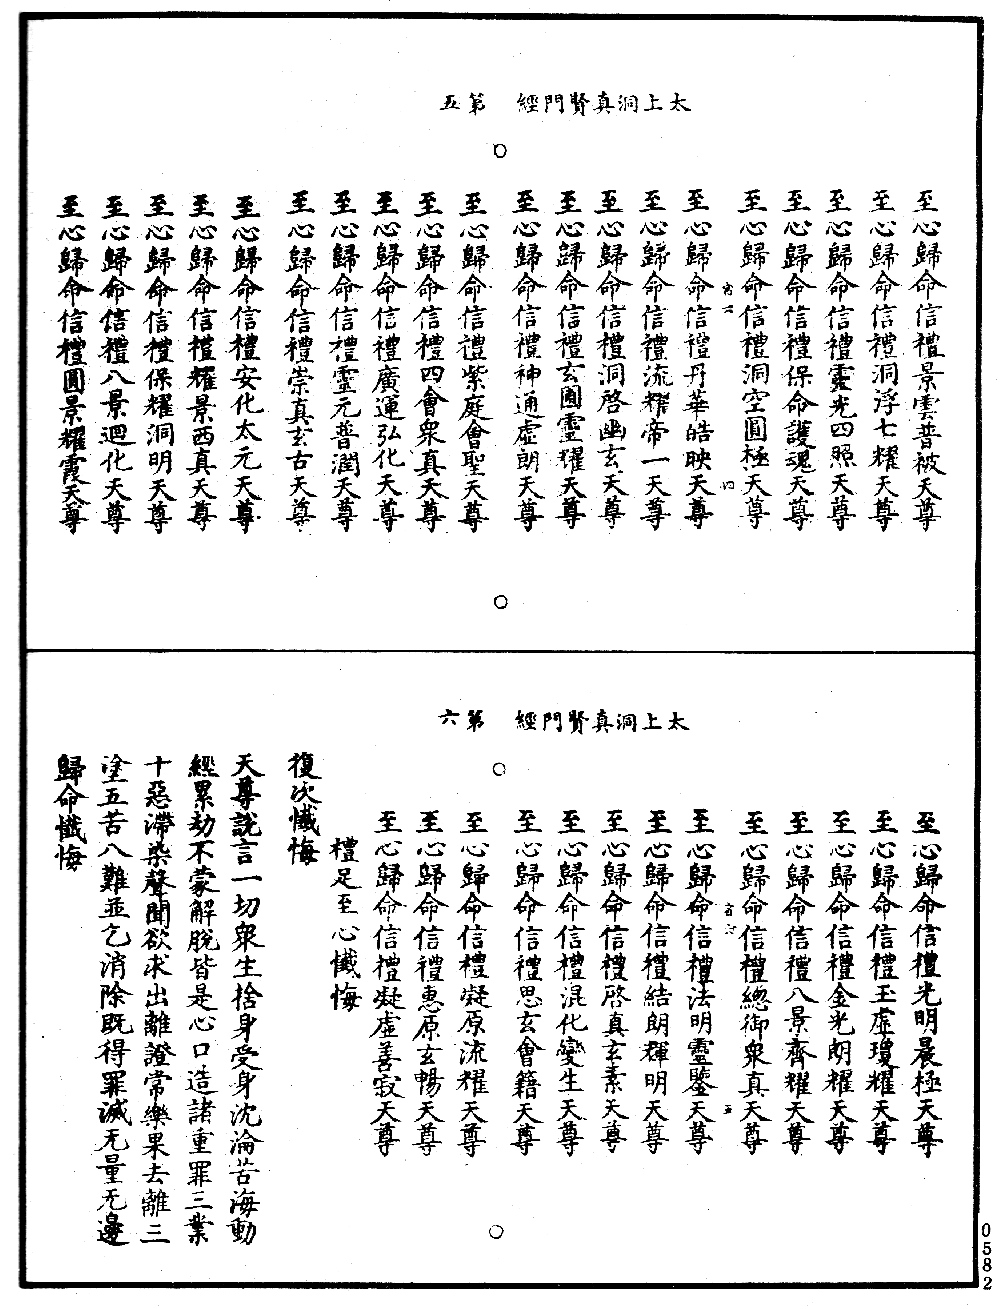 太上洞真賢門經　第五
至心歸命信禮景雲普被天尊
至心歸命信禮洞浮七耀天尊
至心歸命信禮靈光四照天尊
至心歸命信禮保命護魂天尊
至心歸命信禮洞空圓極天尊
至心歸命信禮丹華皓映天尊
至心歸命信禮流耀帝一天尊
至心歸命信禮洞啓幽玄天尊
至心歸命信禮玄圃靈耀天尊
至心歸命信禮神通虛朗天尊
至心歸命信禮紫庭會聖天尊
至心歸命信禮四會衆真天尊
至心歸命信禮廣運弘化天尊
至心歸命信禮靈元普潤天尊
至心歸命信禮崇真玄古天尊
至心歸命信禮安化太元天尊
至心歸命信禮耀景西真天尊
至心歸命信禮保耀洞明天尊
至心歸命信禮八景迴化天尊
至心歸命信禮圓景耀霞天尊
太上洞真賢門經　第六
至心歸命信禮光明晨極天尊
至心歸命信禮玉虛瓊耀天尊
至心歸命信禮金光朗耀天尊
至心歸命信禮八景齊耀天尊
至心歸命信禮總御衆真天尊
五
至心歸命信禮法明靈鑒天尊
至心歸命信禮結朗輝明天尊
至心歸命信禮啓真玄素天尊
至心歸命信禮混化變生天尊
至心歸命信禮思玄會籍天尊
至心歸命信禮凝原流耀天尊
至心歸命信禮惠原玄暢天尊
至心歸命信禮凝虛善寂天尊
禮足至心懺悔
復次懺悔
天尊說言一切衆生捨身受身沈淪苦海動
經累劫不蒙解脫皆是心口造諸重罪三業
十惡滯染聲聞欲求出離證常樂果去離三
塗五苦八難並乞消除既得罪滅无量无邊
歸命懺悔
0582